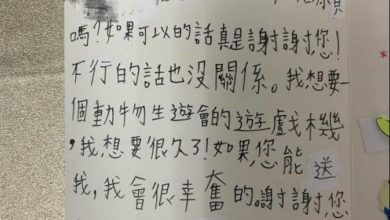 嗎?如果可以的話真是謝謝您!
不行的話也没關係。我想要一
個動物生遊會的遊戲機
,我想要很久了!如果您能送
我,我會很幸奮的謝謝您